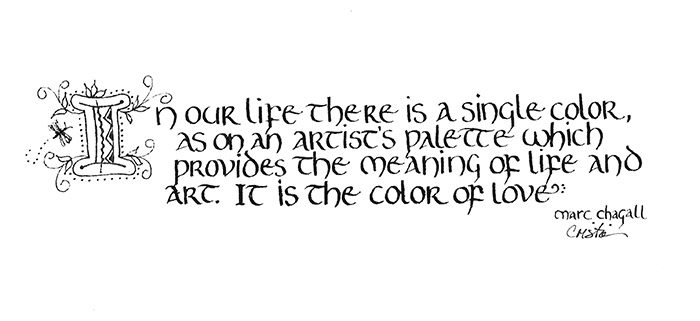 In our life there is a single color,
as on an artist's palette which
provides the meaning of life and
art. It is the color of love
marc chagall